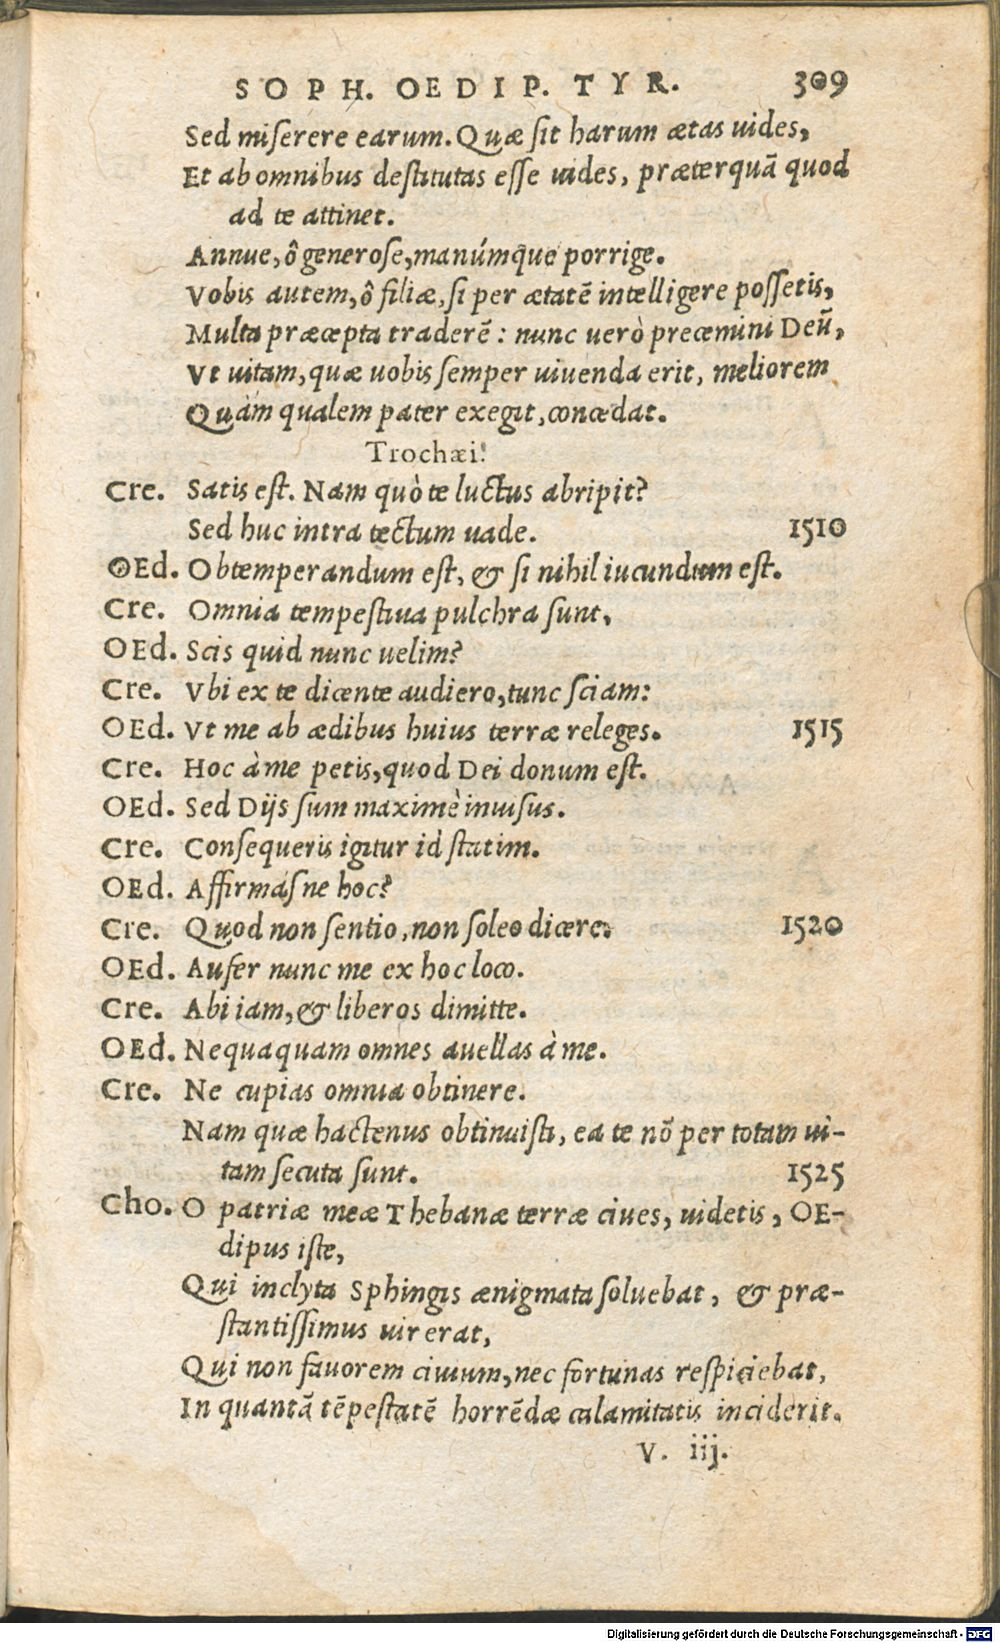 SOPH. OEDIP. TYR. 309
Sed miserere earum. Quæ sit harum ætas uides,
Et ab omnibus destitutas esse uides, præterquã quod
ad te attinet.
Annue, ô generose, manúmque porrige.
Vobis autem, ô filiæ, si per ætatẽ intelligere possetis,
Multa præcepta traderẽ: nunc uerò precemini Deũ,
Vt uitam, quæ uobis semper uiuenda erit, meliorem
Quàm qualem pater exegit, concedat.
Trochæi.
Cre. Satis est. Nam quò te luctus abripit?
Sed huc intra tectum uade. 1510
OEd. Obtemperandum est, & si nihil iucundum est.
Cre. Omnia tempestiua pulchra sunt,
OEd. Scis quid nunc uelim?
Cre. Vbi ex te dicente audiero, tunc sciam:
OEd. Vt me ab ædibus huius terræ releges. 1515
Cre. Hoc à me petis, quod Dei donum est.
OEd. Sed Dijs sum maximè inuisus.
Cre. Consequeris igitur id statim.
OEd. Affirmásne hoc?
Cre. Quod non sentio, non soleo dicere. 1520
OEd. Aufer nunc me ex hoc loco.
Cre. Abi iam, & liberos dimitte.
OEd. Nequaquam omnes auellas à me.
Cre. Ne cupias omnia obtinere.
Nam quæ hactenus obtinuisti, ea te nõ per totam ui-
tam secuta sunt. 1525
Cho. O patriæ meæ Thebanæ terræ ciues, uidetis, OE-
dipus iste,
Qui inclyta Sphingis ænigmata soluebat, & præ-
stantissimus uir erat,
Qui non fauorem ciuium, nec fortunas respiciebat,
In quantã tẽpestatẽ horrẽdæ calamitatis inciderit.
V. iij.
Digitalisierung gefördert durch die Deutsche Forschungsgemeinschaft - DFG